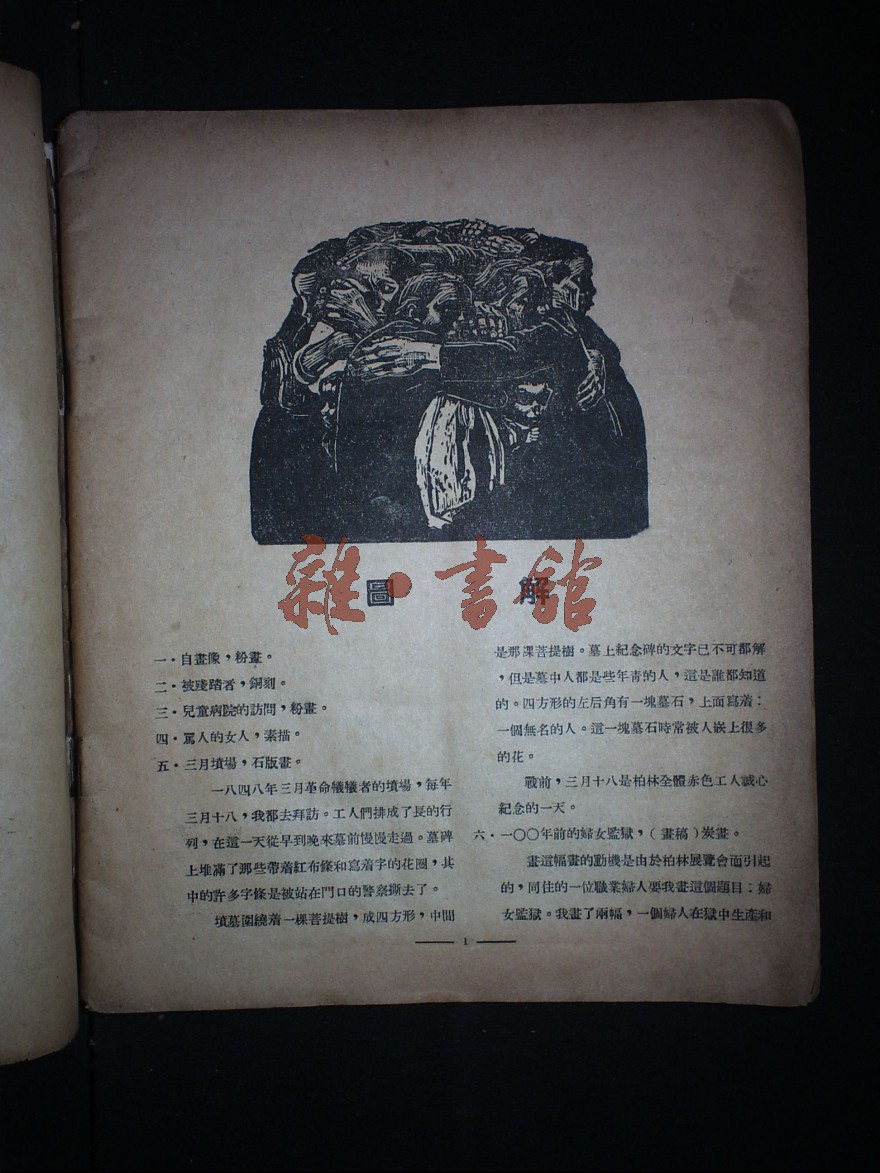 圖解
雜·書館
一·自畫像，粉畫。
二·被殘踏者，銅刻。
三·兒童病院的訪問，粉畫。
四·罵人的女人，素描。
五·三月墳場，石版畫。
一八四八年三月革命犧犧者的墳場，每年
三月十八，我都去拜訪。工人們排成了長的行
列，在這一天從早到晚來墓前慢慢走過。墓碑
上堆滿了那些帶着紅布條和寫着字的花圈，其
中的許多字條是被站在門口的警察撕去了。
墳墓圍繞着一棵菩提樹，成四方形，中間
是那課菩提樹。墓上紀念碑的文字已不可都解
，但是墓中人都是些年青的人，這是誰都知道
的。四方形的左后角有一塊墓石，上面寫着：
一個無名的人。這一塊墓石時常被人嵌上很多
的花。
戰前，三月十八是柏林全體赤色工人誠心
紀念的一天。
六·一〇〇年前的婦女監獄，（畫稿）炭畫。
畫這幅畫的動機是由於柏林展覽會而引起
的，同住的一位職業婦人要我畫這個題目：婦
女監獄。我畫了兩幅，一個婦人在獄中生產和
1